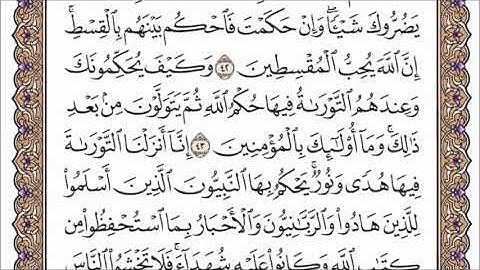 يَضُرُّوكَ شَيْـًٔا ۖ وَإِنْ حَكَمْتَ فَٱحْكُم بَيْنَهُم بِٱلْقِسْطِ ۚ
إِنَّ ٱللَّهَ يُحِبُّ ٱلْمُقْسِطِينَ ٤٢ وَكَيْفَ يُحَكِّمُونَكَ
وَعِندَهُمُ ٱلتَّوْرَىٰةُ فِيهَا حُكْمُ ٱللَّهِ ثُمَّ يَتَوَلَّوْنَ مِنۢ بَعْدِ
ذَٰلِكَ ۚ وَمَآ أُو۟لَـٰٓئِكَ بِٱلْمُؤْمِنِينَ ٤٣ إِنَّآ أَنزَلْنَا ٱلتَّوْرَىٰةَ
فِيهَا هُدًى وَنُورٌ ۚ يَحْكُمُ بِهَا ٱلنَّبِيُّونَ ٱلَّذِينَ أَسْلَمُوا۟
لِلَّذِينَ هَادُوا۟ وَٱلرَّبَّـٰنِيُّونَ وَٱلْأَحْبَارُ بِمَا ٱسْتُحْفِظُوا۟ مِن
كِتَـٰبِ ٱللَّهِ وَكَانُوا۟ عَلَيْهِ شُهَدَآءَ ۚ فَلَا تَخْشَوُا۟ ٱلنَّاسَ